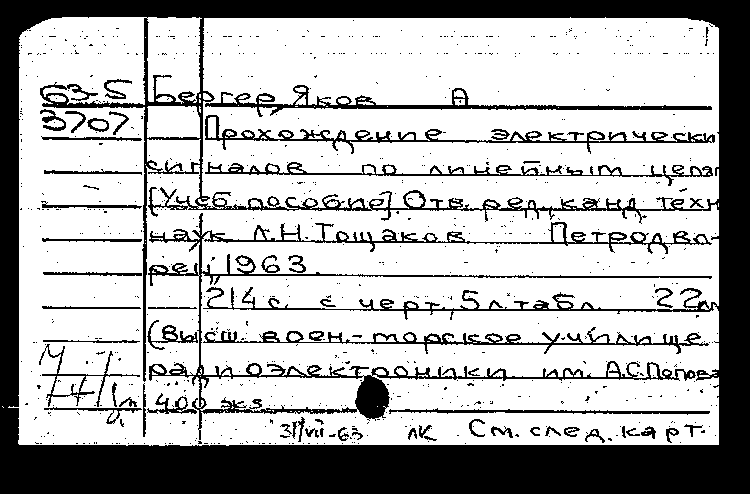 63-5 Бергер, Яков А
3707 Прохождение электрически
сигналов по линейным цепя
[Учеб. пособие]. Отв. ред. канд. техн
наук Л.Н. Тощаков. Петродво-
рец, 1963.
214 с. с черт., 5 л. табл. 22
(Высш. воен.-морское училище
радиоэлектроники им. А.С. Попова
400 экз.
31/VII-63 ЛК См. след. карт.